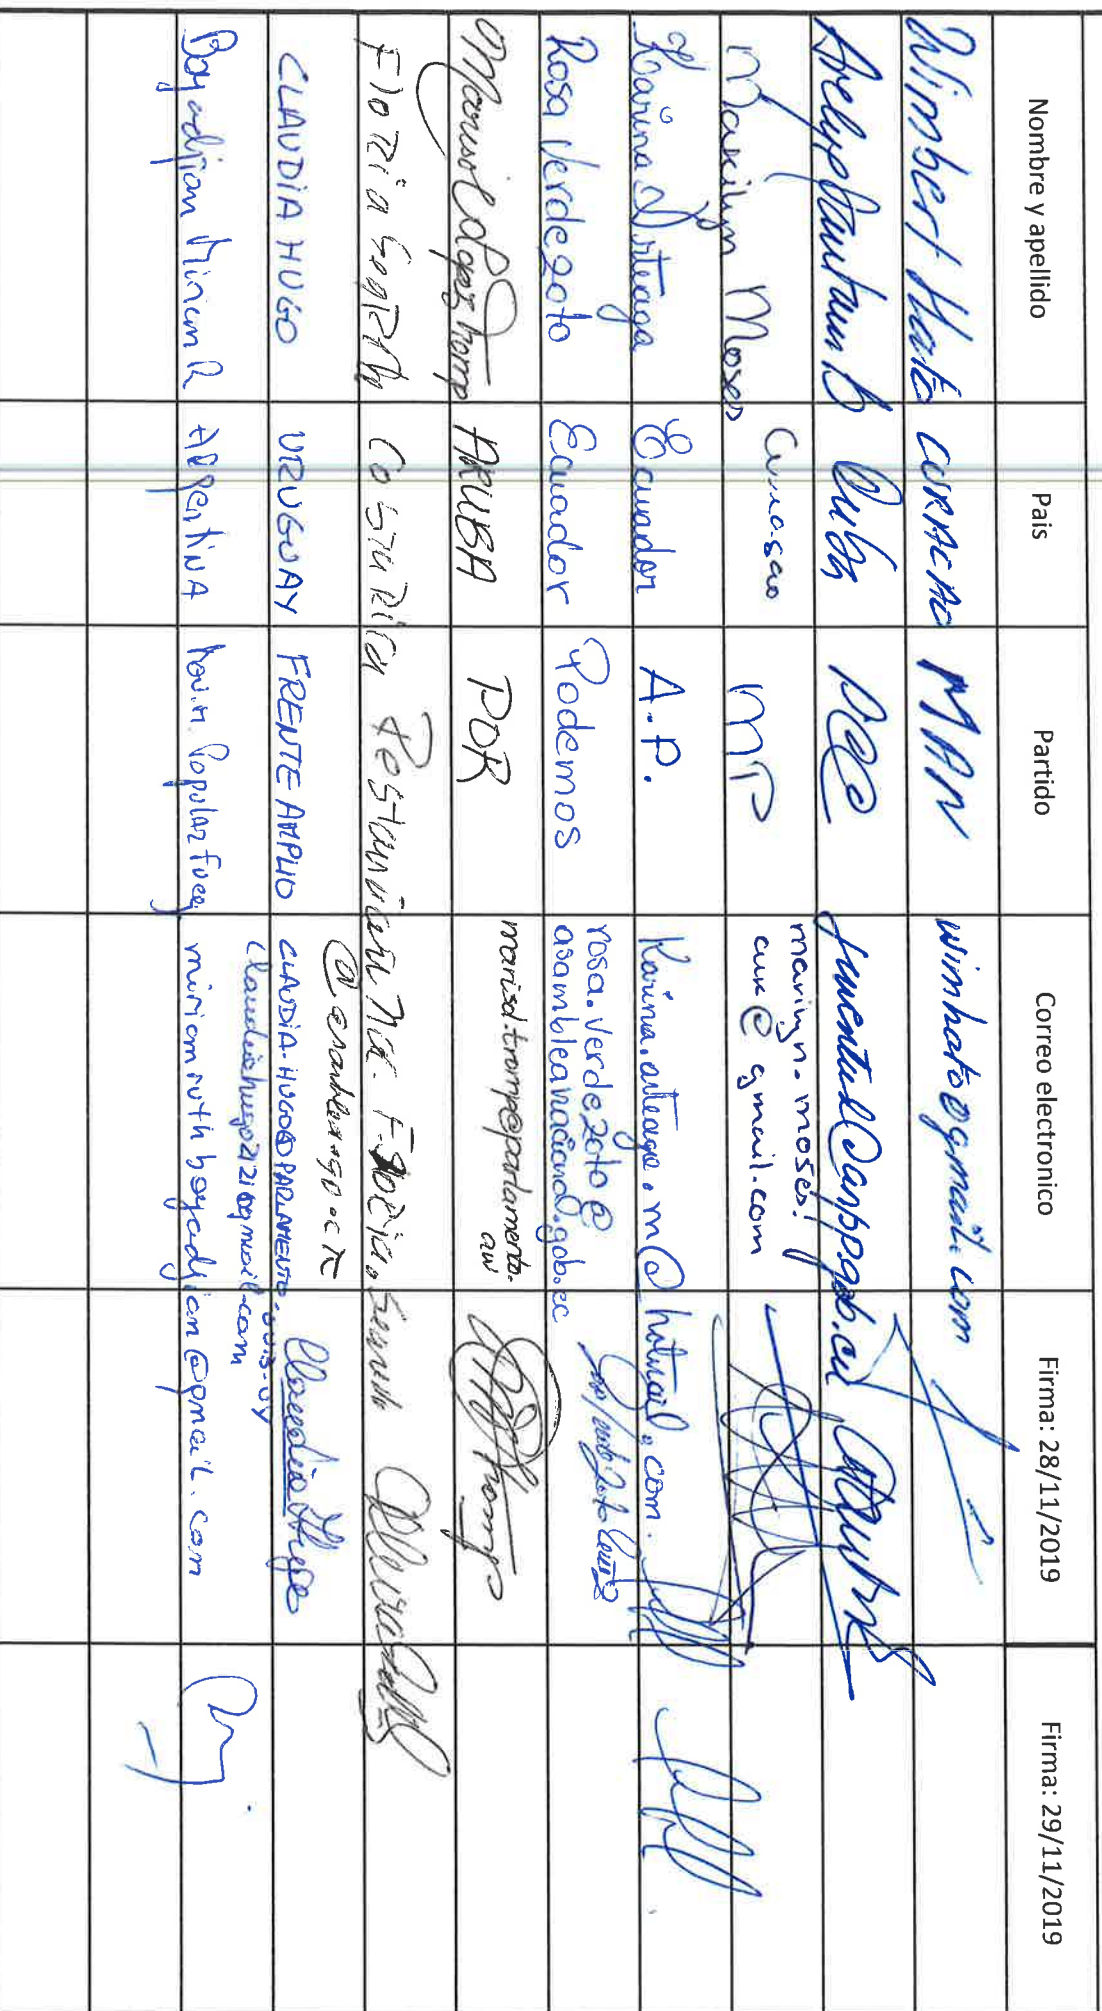 Nombre y apellido Pais Partido Correo electronico Firma: 28/11/2019 Firma: 29/11/2019
Wimbert Hato CURACAO MAN wimhato@gmail.com
Arelys Santana B Cuba PCC
Marilyn Moses Curaçao MP marilyn.moses!
cur@gmail.com
Karina Arteaga Ecuador A.P. Karina.arteaga.m@hotmail.com.
Rosa Verdezoto Ecuador Podemos rosa.verdezoto@
asambleanacional.gob.ec
Marisol Lopez Tromp ARUBA POR marisol.tromp@parlamento.
aw
Floria Segreda Costa Rica
CLAUDIA HUGO URUGUAY FRENTE AMPLIO CLAUDIA.HUGO@PARLAMENTO.GUB.UY
Claudiahugo2121@gmail.com
Boyadjian Miriam R Argentina Mov. Popular Fueg miriamruthboyadjian@gmail.com